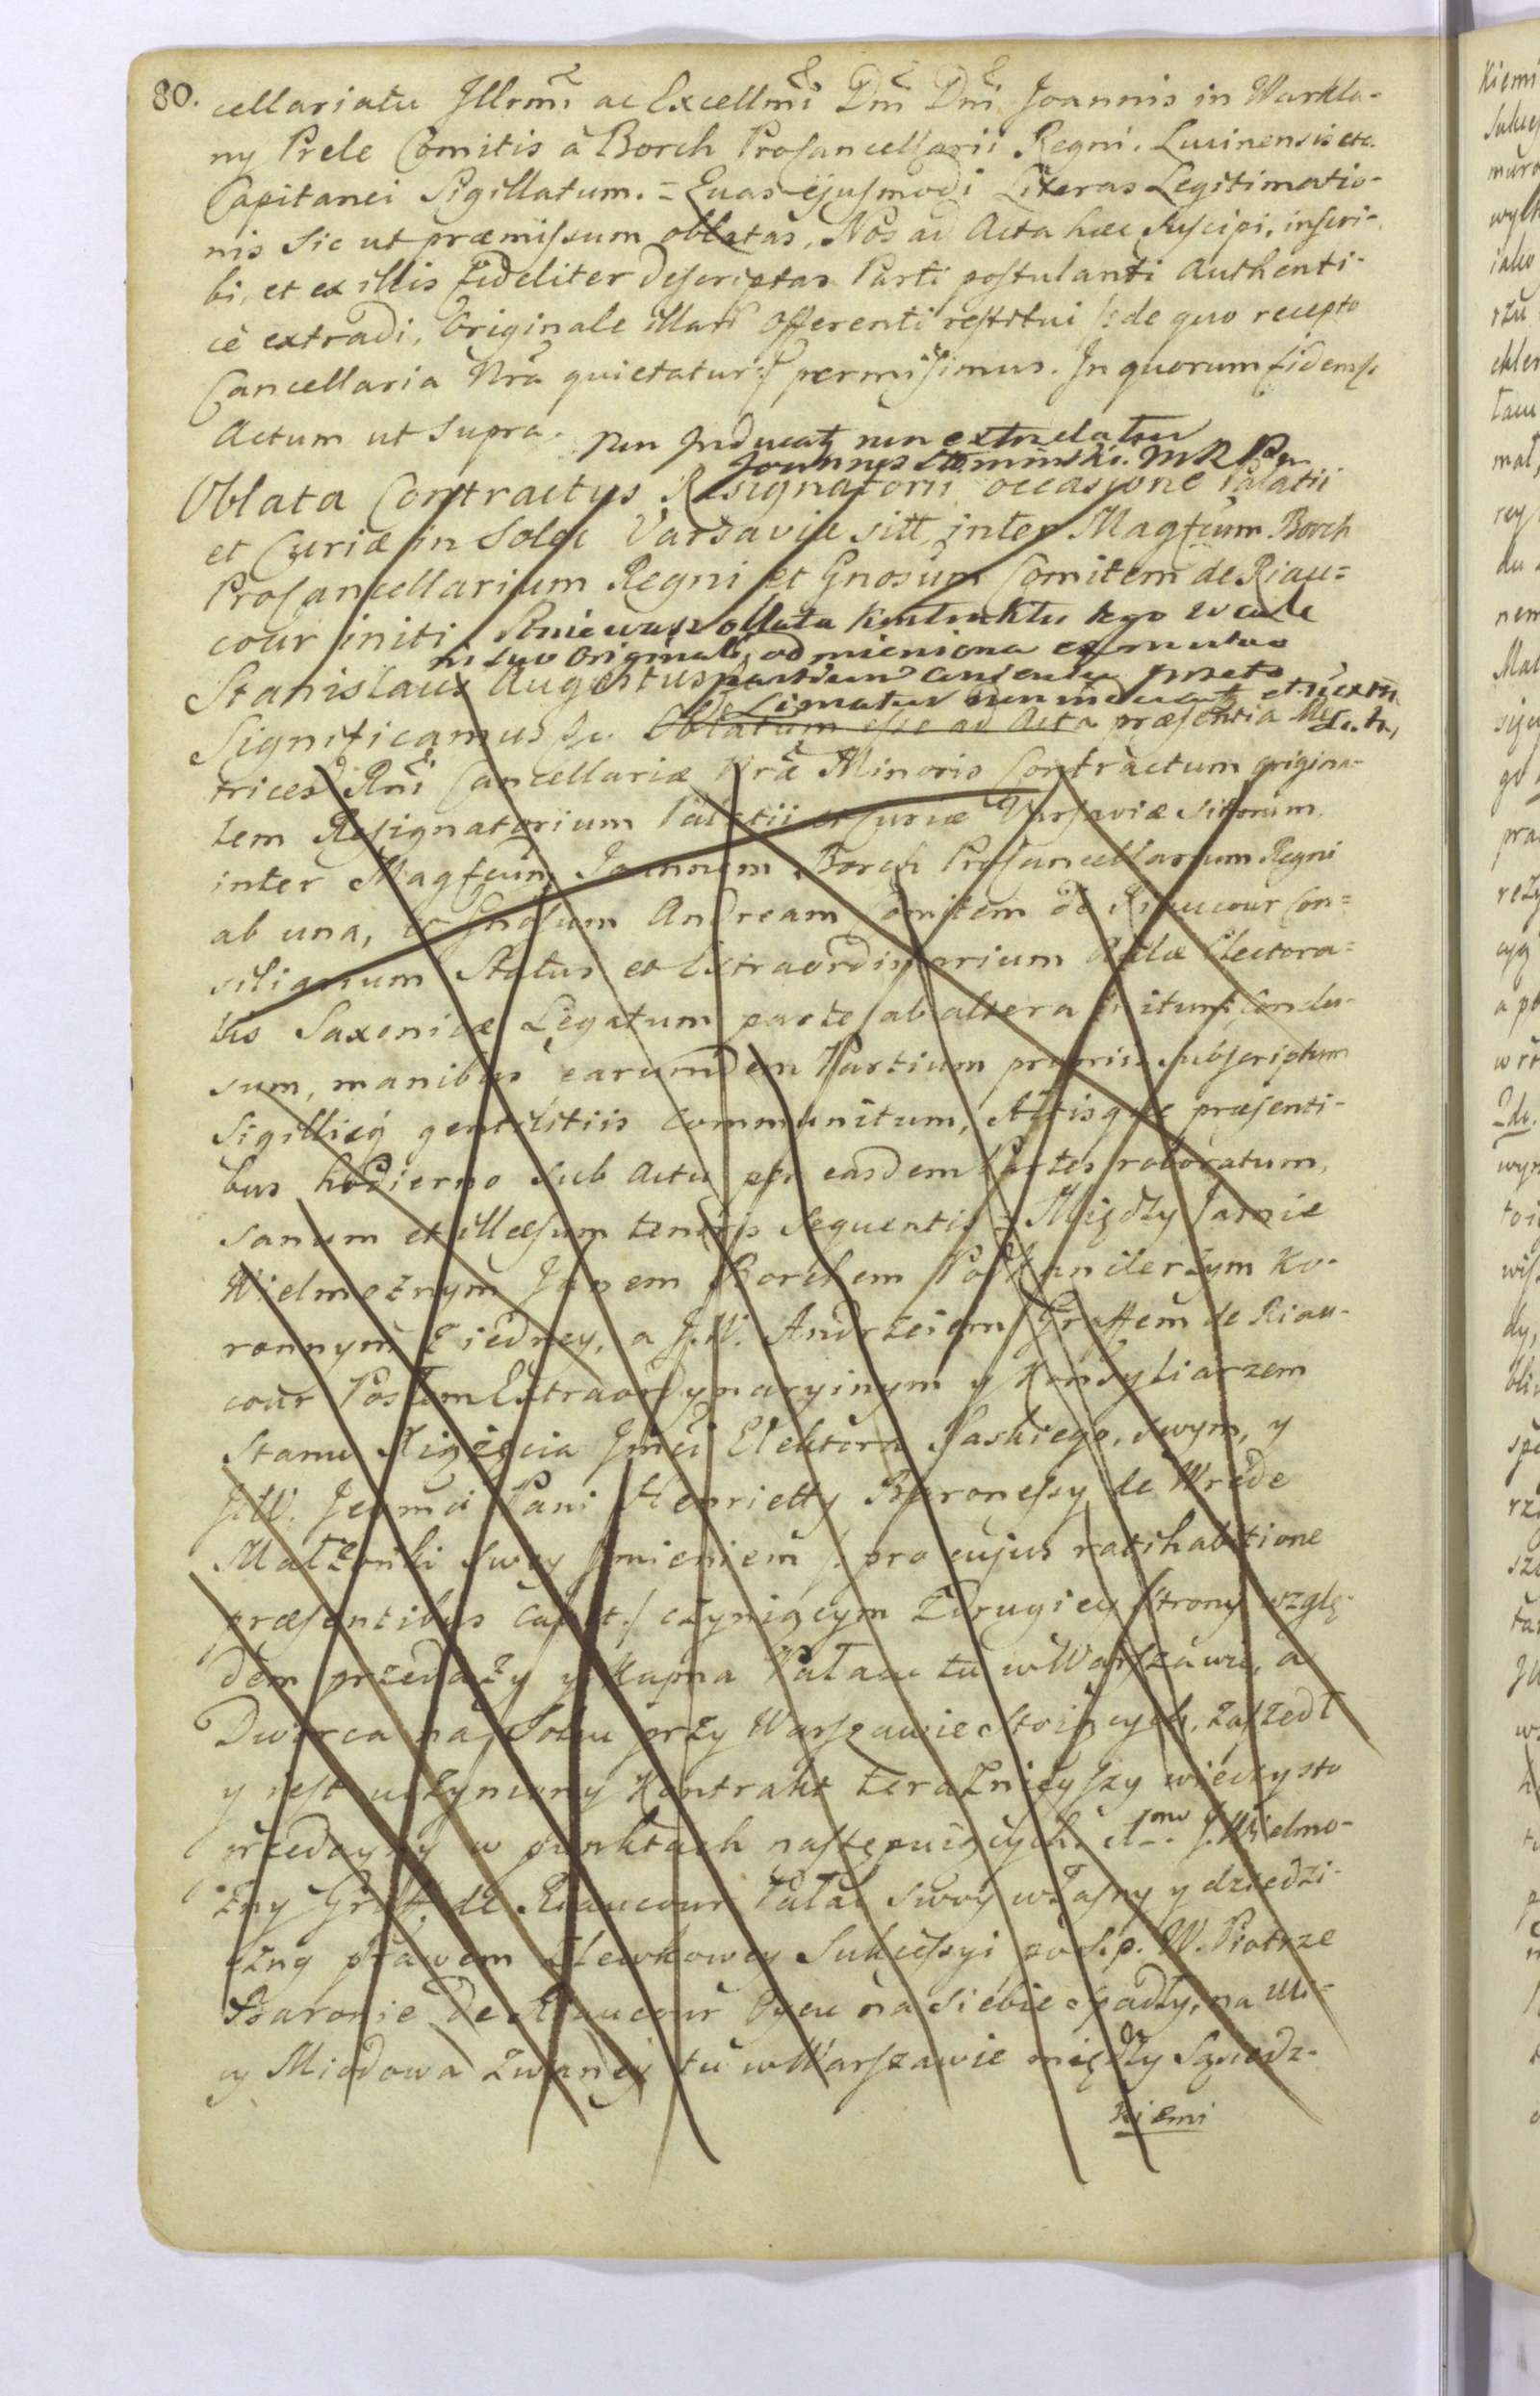 80.
cellariatu Jllrmi ac Excellmi Dni Dni Joannis in Warkla-
ny Prele Comitis à Borch Procancellarii Regni. Lucinensis etc.
Capitanei Sigillatum. = Quas ejusmodi Literas Legitimatio-
nis sic ut præmissum oblatas, Nos ad Acta hæc suscipi, inscri-
bi, et ex illis fideliter descriptas Parti postulanti Authenti-
cè extradi, Originale illarum Offerenti restitui /: de quo recepto
Cancellaria Nra quietatur :/ permisimus. In quorum fidem etc.
Actum ut supra.
non Inducat non extradatur
Joannes MR
Oblata Contractus Resignatorii occasione Palatii
et Curiæ in Solec Varsaviæ sitt. inter Magfcum Borch
Procancellarium Regni et Gnosum Comitem de Riau=
cour initi.
Poniewasz oblata kontraktu tego w cale
in suo originali odmieniona ex mutuo
partium consensu
Stanislaus Augustus
Significamus etc. Oblatum esse ad Acta præsentia Me-
trices Rni Cancellariæ Nræ Minoris Contractum origina-
lem Resignatorium Palatii et Curiæ Varsaviæ sitorum,
inter Magfcum Joannem Borch Procancellarium Regni
ab una, et Gnosum Andream Comitem de Riaucour Con=
siliarium Status et Extraordinarium Aulæ Electora=
lis Saxonicæ Legatum parte ab altera initum, Conclu-
sum, manibus earumdem Partium propriis subscriptum
Sigillisq gentilitiis communitum, Actisque præsenti-
bus hodierno sub actu per easdem Partes roboratum,
sanum et illæsum tenoris sequentis = Między Jaśnie
Wielmożnym Janem Borchem Podkanclerzym Ko-
ronnym z iedney, a J.W. Andrzeiem Graffem de Riau-
cour Posłem Extraordynaryinym y Konsyliarzem
Stanu Xiążęcia Jmci Elektora Saskiego, swym, y
J.W. Jeymci Pani Henrietty Baronessy de Wrede
Małżonki swey Jmieniem /: pro cujus ratihabitione
præsentibus cavet :/ czyniącym z drugiey strony wzglę-
dem przedaży y Kupna Pałacu tu w Warszawie, a
Dworca na Solcu przy Warszawie stoiących, zaszedł
y iest uczyniony Kontrakt teraznieyszy wieczysto
przedayny w punktach następuiących. 1mo J.Wielmo-
żny Graff de Riaucour Pałac swoy własny y dziedzi-
czny prawem Zlewkowey Sukcessyi po Ś.p. W. Piotrze
Baronie de Riaucour Oycu na siebie spadły, na uli-
cy Miodowa zwaney tu w Warszawie między Sąsiedz-
kiemi